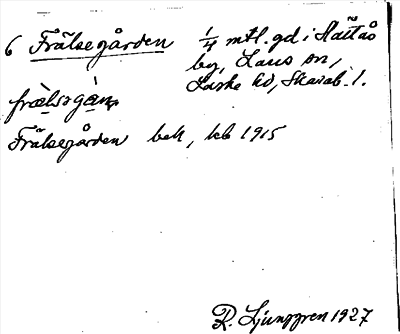 6 Frälsegården 1/4 mtl. gd i Slättås
by, Laus sn,
Laske hd, Skarab. l.
frælsəgán,
Frälsegården bek, kb 1915
R. Ljunggren 1927